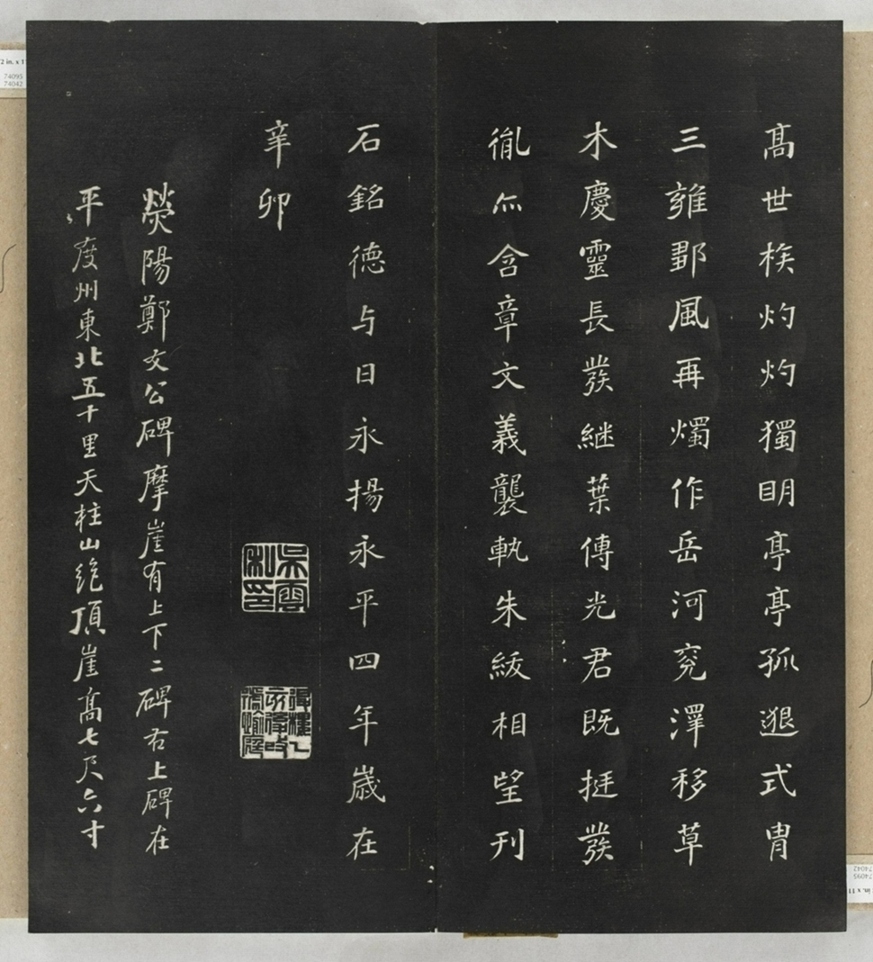 高世族灼灼獨明亭亭孤邈式胄
三雍鄒風再燭作岳河兗澤移草
木慶靈長發継葉傳光君既挺發
胤亦含章文義襲軌朱紱相望刊
石銘德与日永揚永平四年歲在
辛卯
吳雲私印
熒陽鄭文公碑摩崖有上下二碑右上碑在
平度州東北五十里天柱山絶頂崖高七尺六寸
74095
74042
74095
74042